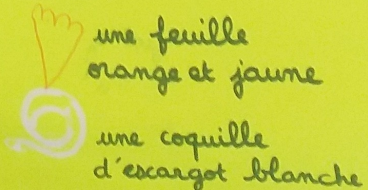 une feuille
orange et jaune
une coquille
d'escargot blanche